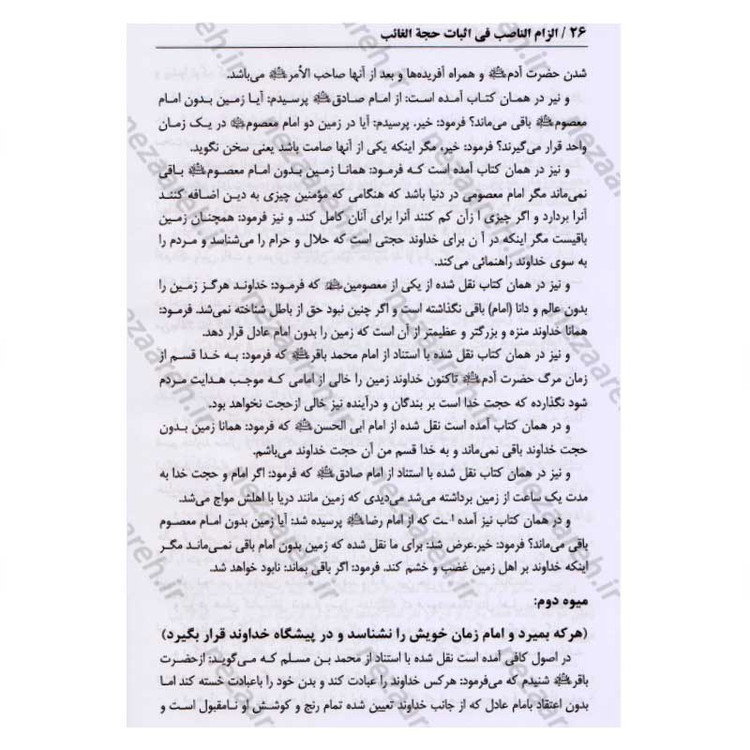 ۲۶ / الزام الناصب فی اثبات حجة الغائب
شدن حضرت آدم و همراه آفریده‌ها و بعد از آنها صاحب الأمر می‌باشد.
و نیر در همان کتاب آمده است: از امام صادق پرسیدم: آیا زمین بدون امام
معصوم باقی می‌ماند؟ فرمود: خیر، پرسیدم: آیا در زمین دو امام معصوم در یک زمان
واحد قرار می‌گیرند؟ فرمود: خیر، مگر اینکه یکی از آنها صامت باشد یعنی سخن نگوید.
و نیز در همان کتاب آمده است که فرمود: همانا زمین بدون امام معصوم باقی
نمی‌ماند مگر امام معصومی در دنیا باشد که هنگامی که مؤمنین چیزی به دین اضافه کنند
آنرا بردارد و اگر چیزی ا زآن کم کنند آنرا برای آنان کامل کند. و نیز فرمود: همچنان زمین
باقیست مگر اینکه در آ ن برای خداوند حجتی است که حلال و حرام را می‌شناسد و مردم را
به سوی خداوند راهنمائی می‌کند.
و نیز در همان کتاب نقل شده از یکی از معصومین که فرمود: خداوند هرگز زمین را
بدون عالم و دانا (امام) باقی نگذاشته است و اگر چنین نبود حق از باطل شناخته نمی‌شد. فرمود:
همانا خداوند منزه و بزرگتر و عظیمتر از آن است که زمین را بدون امام عادل قرار دهد.
و نیز در همان کتاب نقل شده با استناد از امام محمد باقر که فرمود: به خدا قسم از
زمان مرگ حضرت آدم تاکنون خداوند زمین را خالی از امامی که موجب هدایت مردم
شود نگذارده که حجت خدا است بر بندگان و درآینده نیز خالی ازحجت نخواهد بود.
و در همان کتاب آمده است نقل شده از امام ابی الحسن که فرمود: همانا زمین بدون
حجت خداوند باقی نمی‌ماند و به خدا قسم من آن حجت خداوند می‌باشم.
و نیز در همان کتاب نقل شده با استناد از امام صادق که فرمود: اگر امام و حجت خدا به
مدت یک ساعت از زمین برداشته می‌شد می‌دیدی که زمین مانند دریا با اهلش مواج می‌شد.
و در همان کتاب نیز آمده است که از امام رضا پرسیده شد: آیا زمین بدون امام معصوم
باقی می‌ماند؟ فرمود: خیر.عرض شد: برای ما نقل شده که زمین بدون امام باقی نمی‌ماند مگر
اینکه خداوند بر اهل زمین غضب و خشم کند. فرمود: اگر باقی بماند: نابود خواهد شد.
میوه دوم:
(هرکه بمیرد و امام زمان خویش را نشناسد و در پیشگاه خداوند قرار بگیرد)
در اصول کافی آمده است نقل شده با استناد از محمد بن مسلم که می‌گوید: ازحضرت
باقر شنیدم که می‌فرمود: هرکس خداوند را عبادت کند و بدن خود را باعبادت خسته کند اما
بدون اعتقاد بامام عادل که از جانب خداوند تعیین شده تمام رنج و کوشش او نامقبول است و
nezaareh.ir